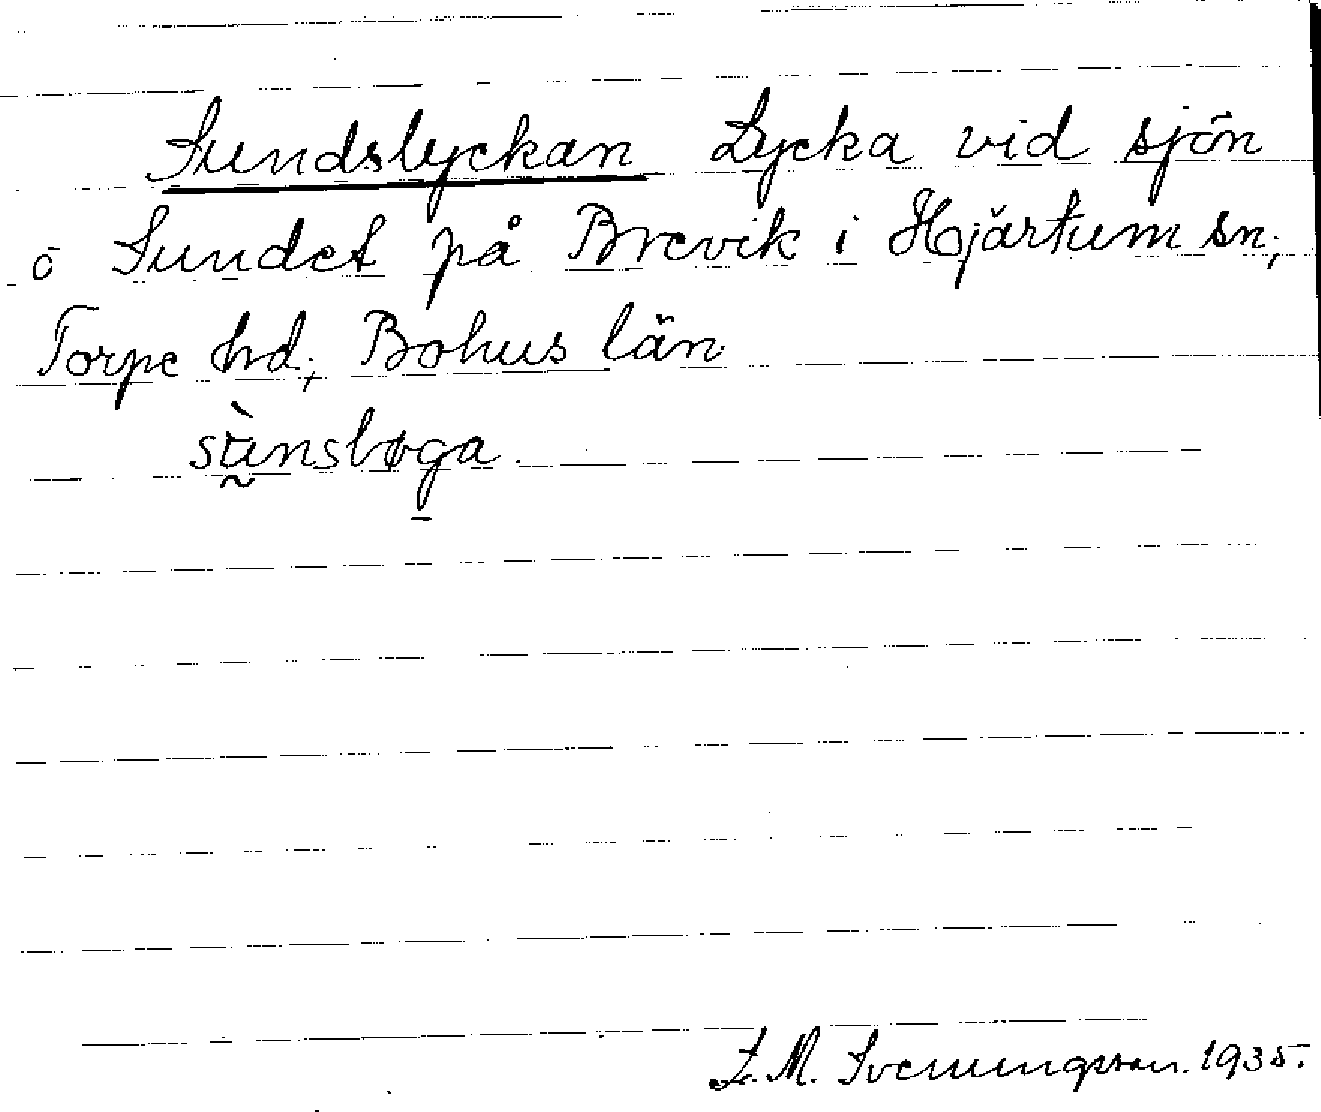 Sundslyckan Lycka vid sjön
o Sundet på Brevik i Hjärtum sn,
Torpe hd, Bohus län
sùnsbøga
L. M. Svenungsson. 1935.